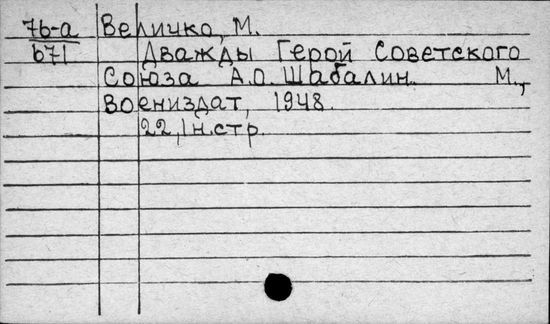 76-а Величко, М.
671 Дважды Герой Советского
Союза А.О. Шабалин. М.,
Воениздат, 1948.
22, 1 н. стр.